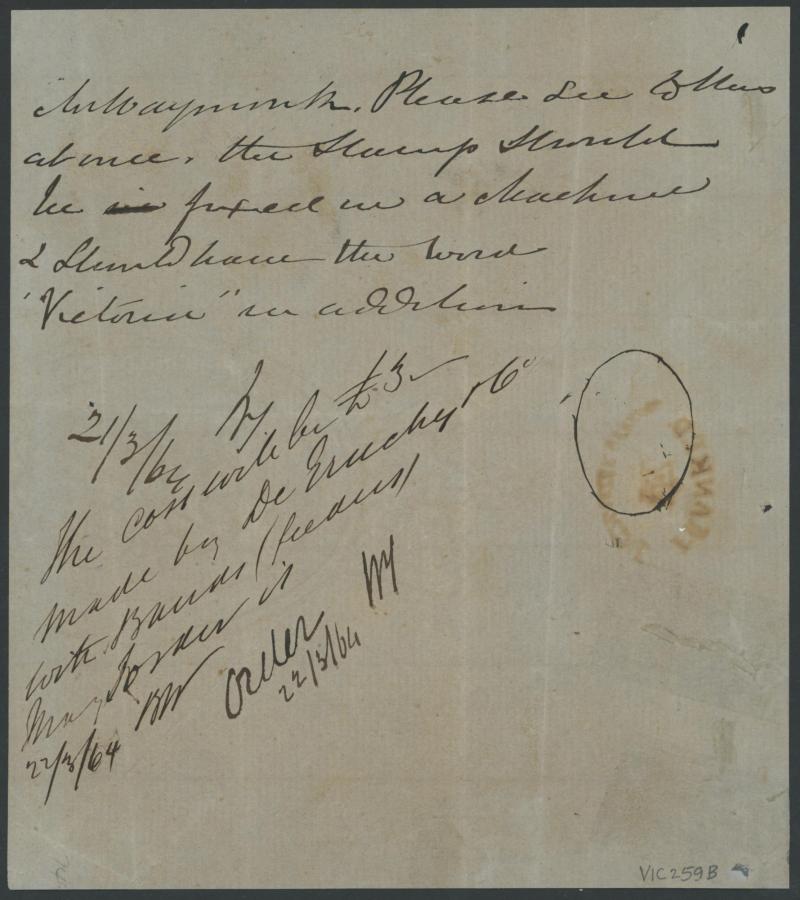 Mr Waymouth. Please see to this
at once. the Stamp Should
be in fixed in a Machine
& Should have the word
"Victoria" in addition
21/3/64
The cost will be £3-
made by De Gruchy & Co
with Bands (
May I order it
22/3/64 BW
Order
22/3/64
FRANK
VIC 259B